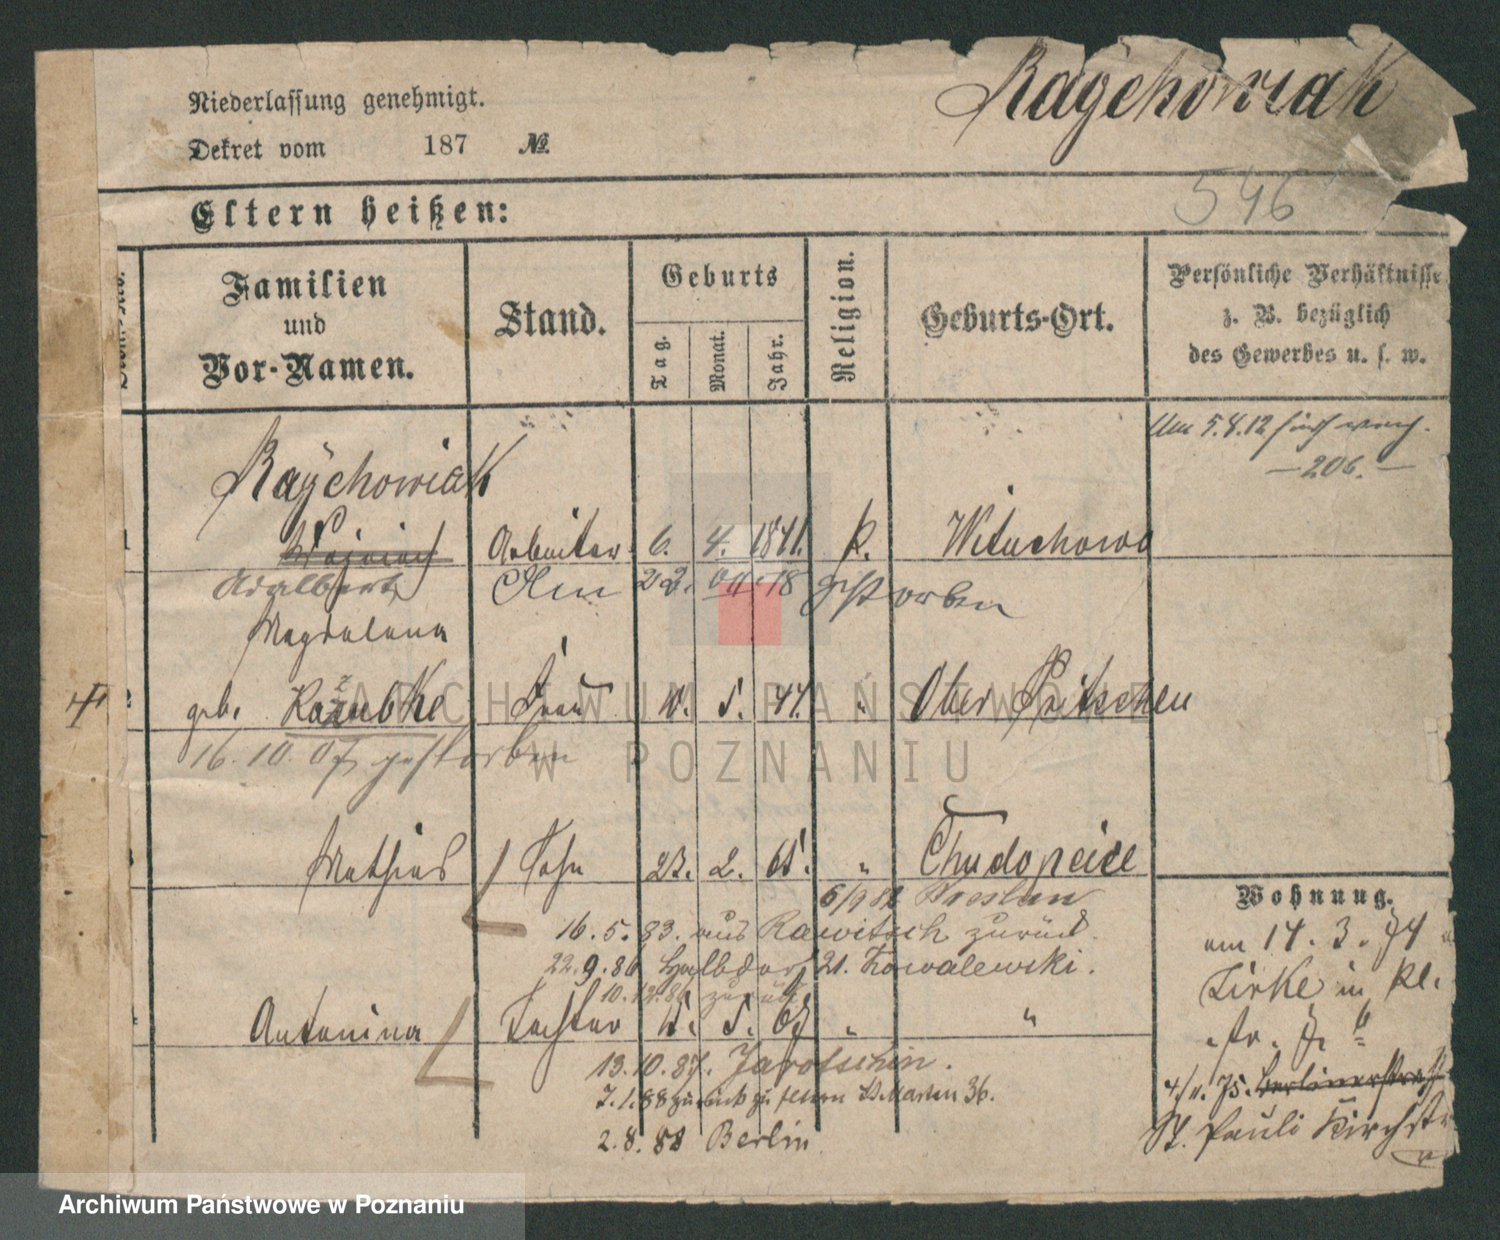 Raÿchowiak
Niederlassung genehmigt.
Dekret vom 187 №
546
Eltern heißen:
Familien und Vor-Namen.
Stand.
Geburts
Tag.
Monat.
Jahr.
Religion.
Geburts-Ort.
Persönliche Verhältnisse
z. B. bezüglich
des Gewerbes u. s. w.
Um 5.4.12
—206.—
Raÿchowiak
1 Arbeiter 6. 4. 1841. k. Wituchowo
Adalbert Am 22. 18 gestorben
Magdalena
2 geb. Kazubke Frau 10. 5. 47. " Ober Pritschen
16.10.07 gestorben
Mathias Sohn 23. 2. 65. " Chudopcice
6/9 82 Breslau
16.5.83. aus Rawitsch zurück.
22.9.86 Halbdorf 21. Kowalewski.
10.12.86 zurück
Antonina Tochter 15. 5. 67 " "
13.10.87. Jarotschin.
7.1.88 zurück zu St. Martin 36.
2.8.88 Berlin.
Wohnung.
am 14.3.74
Zirke in Kl.
4/11.75. Berlinerstraß
St. Pauli Kirchstr
ARCHIWUM PAŃSTWOWE
W POZNANIU
Archiwum Państwowe w Poznaniu